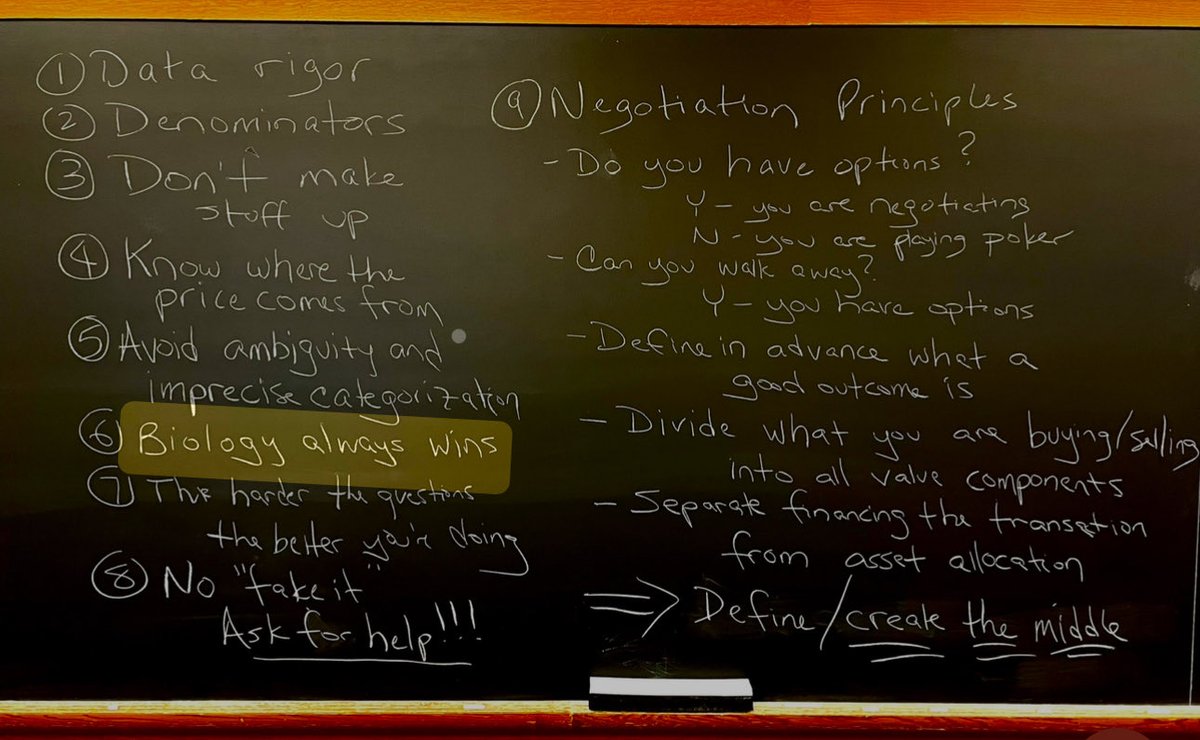 ① Data rigor
② Denominators
③ Don't make
stuff up
④ Know where the
price comes from
⑤ Avoid ambiguity and
imprecise categorization
⑥ Biology always wins
⑦ The harder the questions
the better you're doing
⑧ No "fake it"
Ask for help!!!
⑨ Negotiation Principles
- Do you have options?
Y - you are negotiating
N - you are playing poker
- Can you walk away?
Y - you have options
- Define in advance what a
good outcome is
- Divide what you are buying/selling
into all value components
- Separate financing the transation
from asset allocation
⇒ Define/create the middle